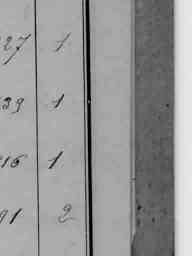 27 1
39 1
16 1
91 2